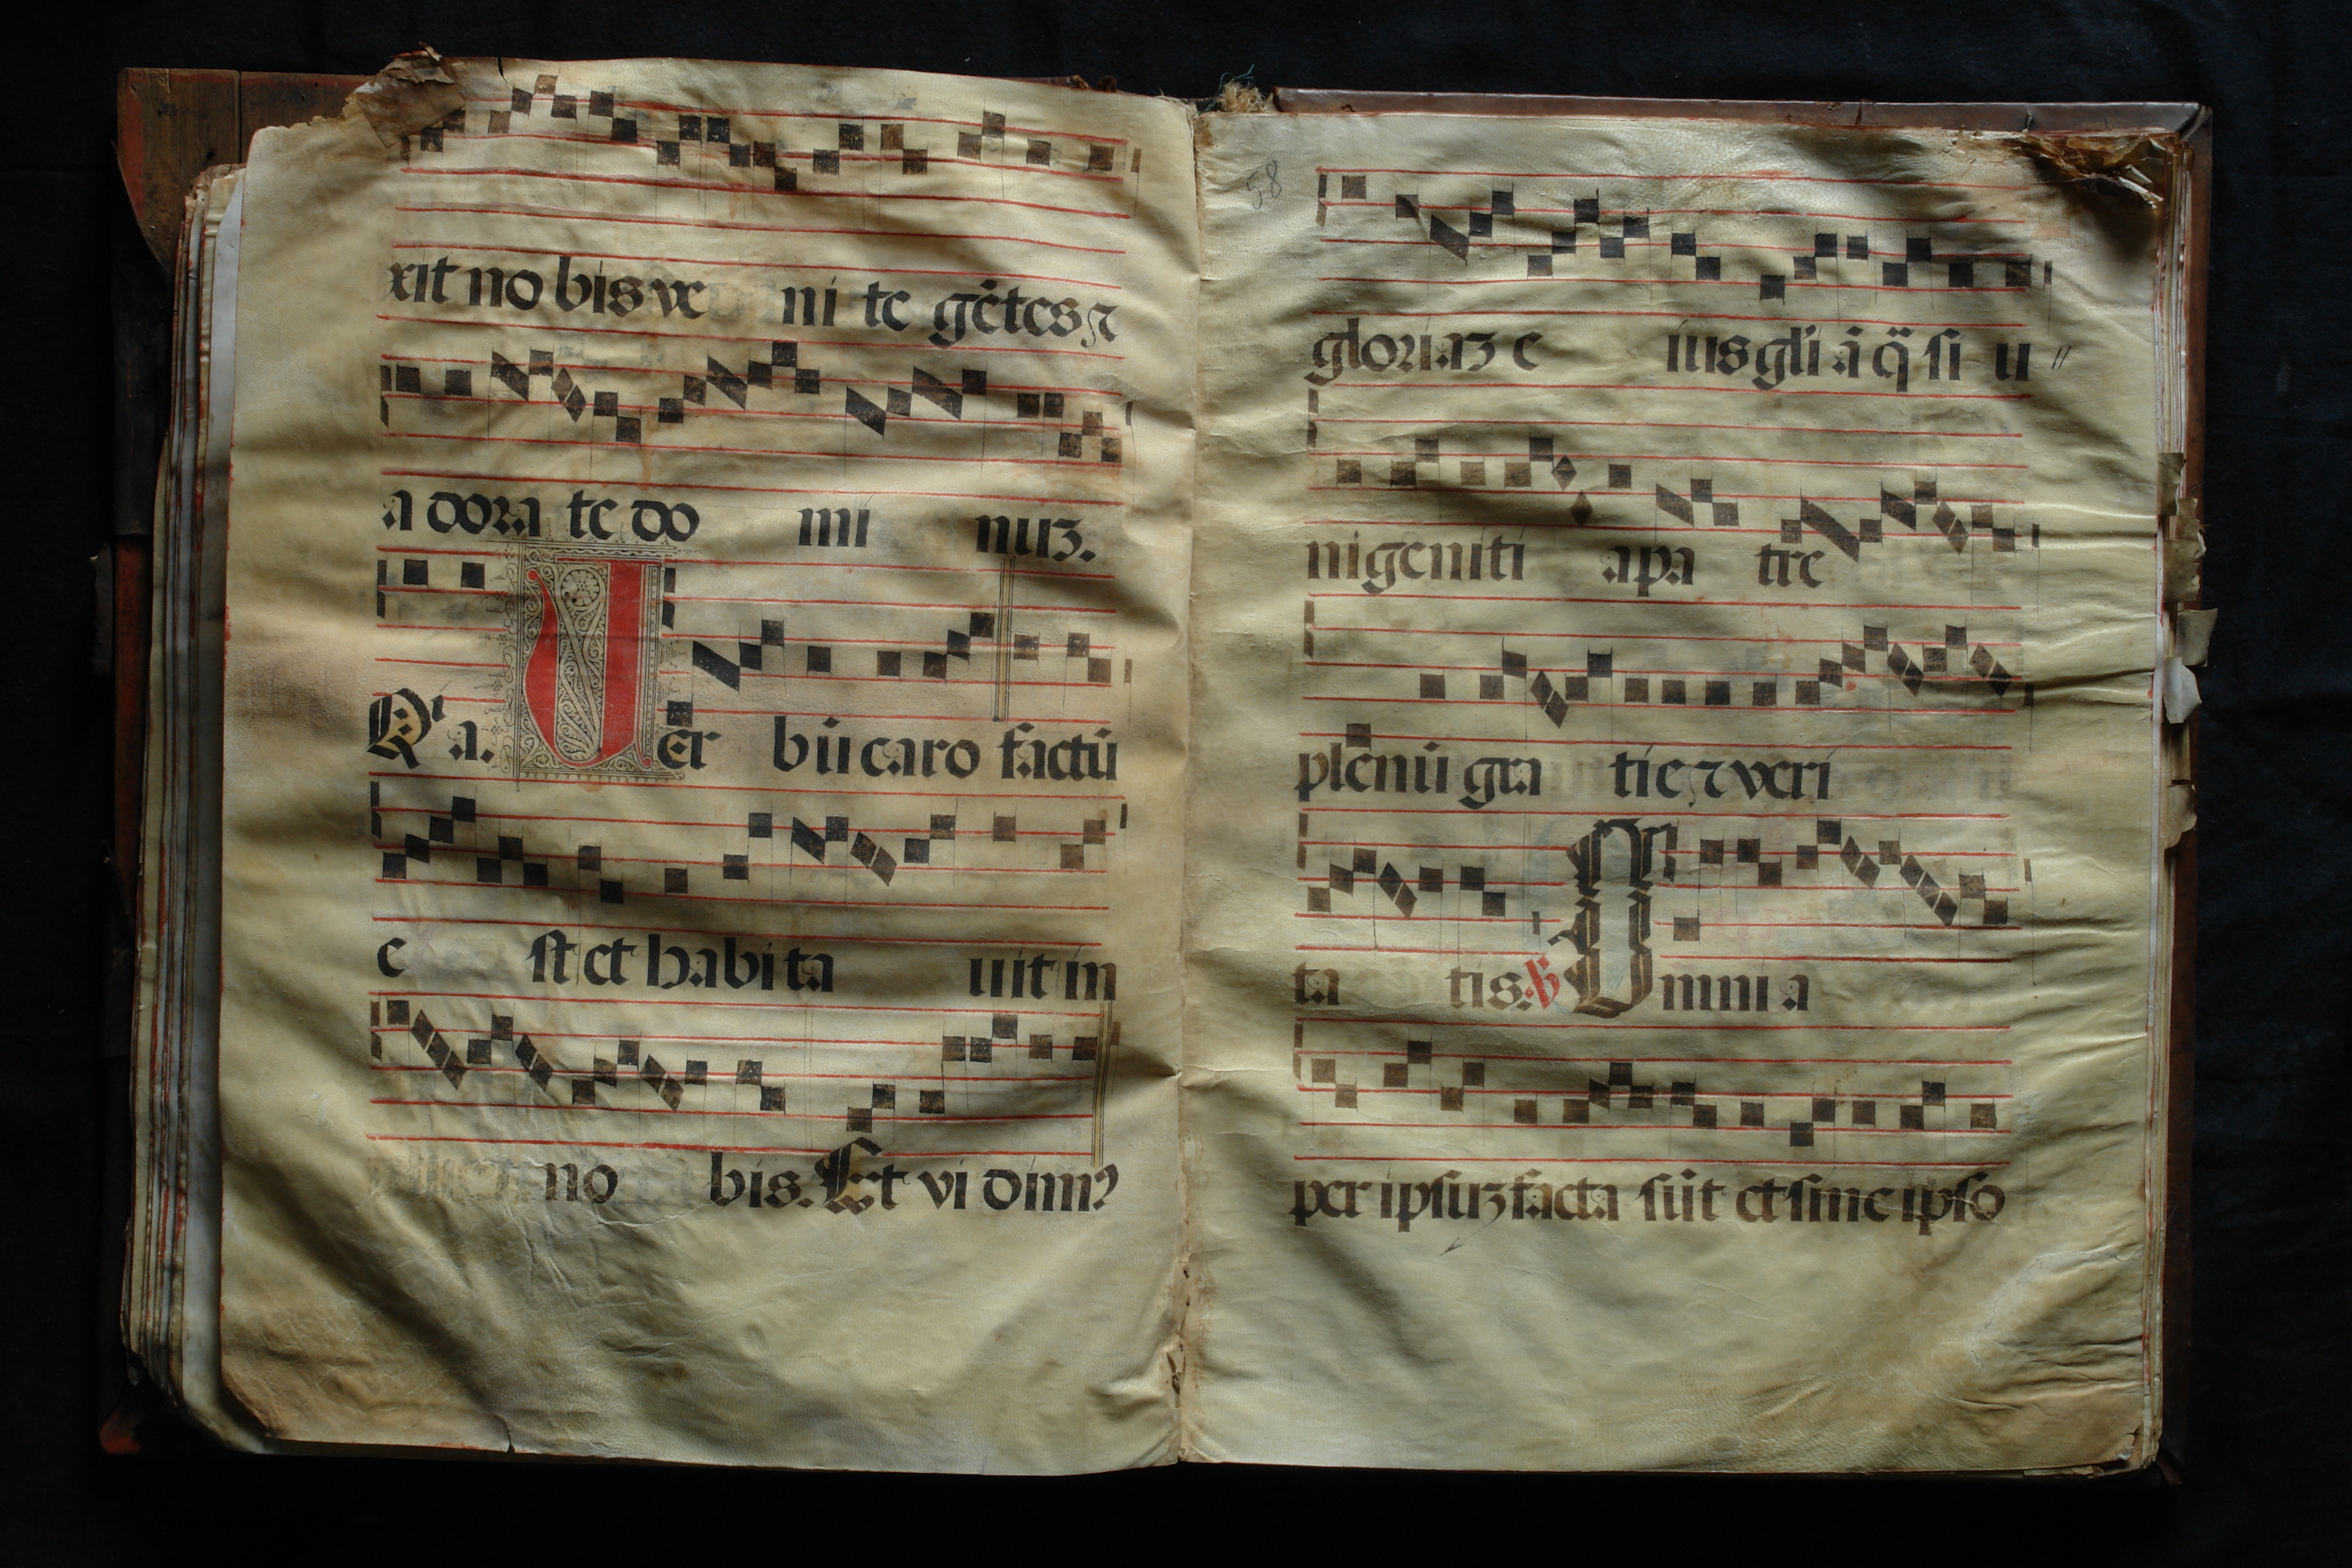 xit no bis ve ni te gētes ⁊
a dora te do mi nuꝫ.
Qꝛ a. Uer bū caro factū
e st et habi ta uit in
no bis. Et vi dimꝰ
58
gloriaꝫ e ius gl'i ā q̄ si u //
nigeniti a pa tre
plenū gra tie ⁊ veri
ta tis. ℣ Omni a
per ipsuꝫ facta sūt et sine ipso